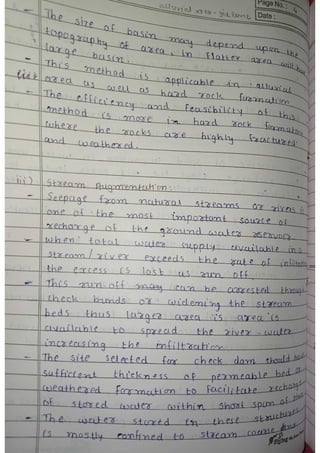 Page No.: 4
Date:
alluvial area
- The size of basin may depend upon the
topography of area. In flatter area will have
large basin.
- This method is applicable in alluvial
area as well as hard rock formation
- The efficiency and feasibility of this
method is more in hard rock formation
where the rocks are highly fractured
and weathered.
iii) Stream Augmentation:
- Seepage from natural streams or rivers is
one of the most important source of
recharge of the ground water reservoir.
- when total water supply available in a
stream/river exceeds the rate of infiltration
the excess is lost as run off.
- This run off may can be arrested through
check bunds or widening the stream
beds thus larger area is area is
available to spread the river water
increasing the infiltration
- The site selected for check dam should have
sufficient thickness of permeable bed or
weathered formation to facilitate recharge
of stored water within short span of time
- The water stored in these structures
is mostly confined to stream course